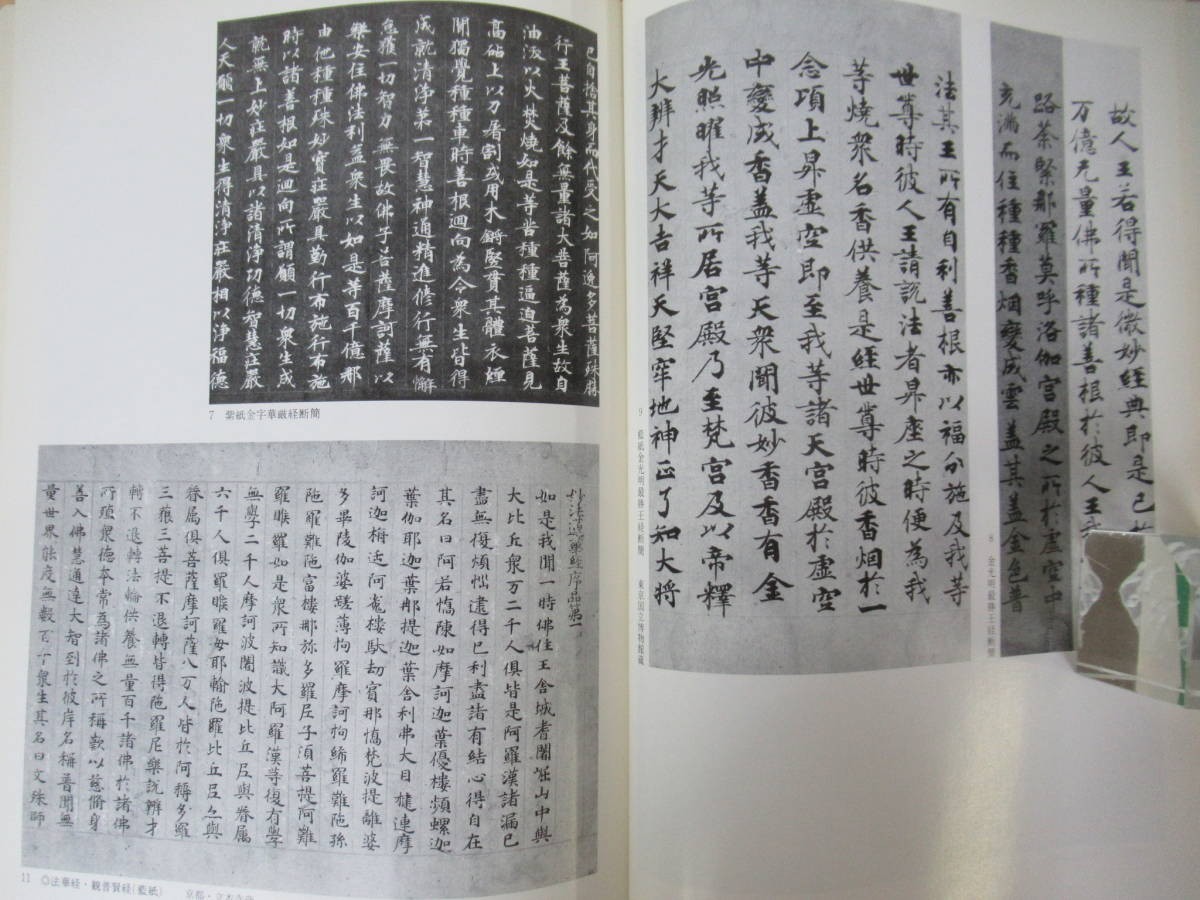 已自捨其身而代受之如阿逸多菩薩殊勝
行王菩薩及餘無量諸大菩薩為衆生故自
油沃以火焚燒如是等苦種種逼迫菩薩見
高砧上以刀屠割或用木鏘竪貫其體衣煙
開獨覺種種車時善根迴向為令衆生皆得
成就清淨第一智慧神通精進修行無有懈
怠獲一切智力無畏故佛子菩薩摩訶薩以
樂安住佛法利益衆生以如是等百千億那
由他種種殊妙寶莊嚴具勤行布施行布施
時以諸善根如是迴向所謂願一切衆生成
就無上妙莊嚴具以諸清淨功德智慧莊嚴
人天願一切衆生得清淨莊嚴相以淨福德
7 紫紙金字華厳経断簡
妙法蓮華經序品第一
如是我聞一時佛住王舍城耆闍崛山中與
大比丘衆万二千人俱皆是阿羅漢諸漏已
盡無復煩惱逮得己利盡諸有結心得自在
其名曰阿若憍陳如摩訶迦葉優樓頻螺迦
葉伽耶迦葉那提迦葉舍利弗大目揵連摩
訶迦栴延阿㝹樓馱劫賓那憍梵波提離婆
多畢陵伽婆蹉薄拘羅摩訶拘絺羅難陁孫
陁羅難陁富樓那弥多羅尼子湏菩提阿難
羅睺羅如是衆所知識大阿羅漢等復有學
無學二千人摩訶波闍波提比丘尼與眷属
六千人俱羅睺羅母耶輸陁羅比丘尼亦與
眷属俱菩薩摩訶薩八万人皆於阿耨多羅
三藐三菩提不退轉皆得陁羅尼樂說辯才
轉不退轉法輪供養無量百千諸佛於諸佛
所殖衆德本常為諸佛之所稱歎以慈脩身
善入佛慧通達大智到於彼岸名稱普聞無
量世界能度無數百千衆生其名曰文殊師
11 ◎法華経・観普賢経(藍紙) 京都・立本寺蔵
故人王若得聞是微妙經典即是已於
万億无量佛所種諸善根於彼人王我
路茶緊那羅莫呼洛伽宫殿之所於虛空中
充滿而住種種香烟變成雲盖其盖金色普
8 金光明最勝王経断簡
法其王所有自利善根亦以福分施及我等
世尊時彼人王請説法者昇座之時便為我
等燒衆名香供養是經世尊時彼香烟於一
念項上昇虛空即至我等諸天宫殿於虛空
中變成香盖我等天衆聞彼妙香香有金
光照曜我等所居宫殿乃至梵宫及以帝釋
大辨才天大吉祥天堅牢地神正了知大将
9 藍紙金光明最勝王経断簡 東京国立博物館蔵